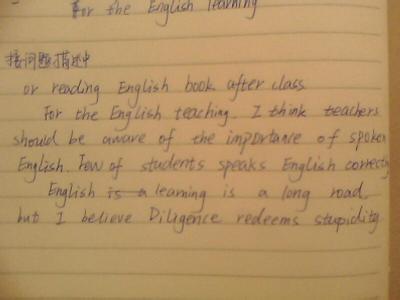 For the English learning
接问题描述中
or reading English book after class
For the English teaching. I think teachers
should be aware of the importance of spoken
English. Few of students speaks English correctly
English is a learning is a long road.
but I believe Diligence redeems stupidity